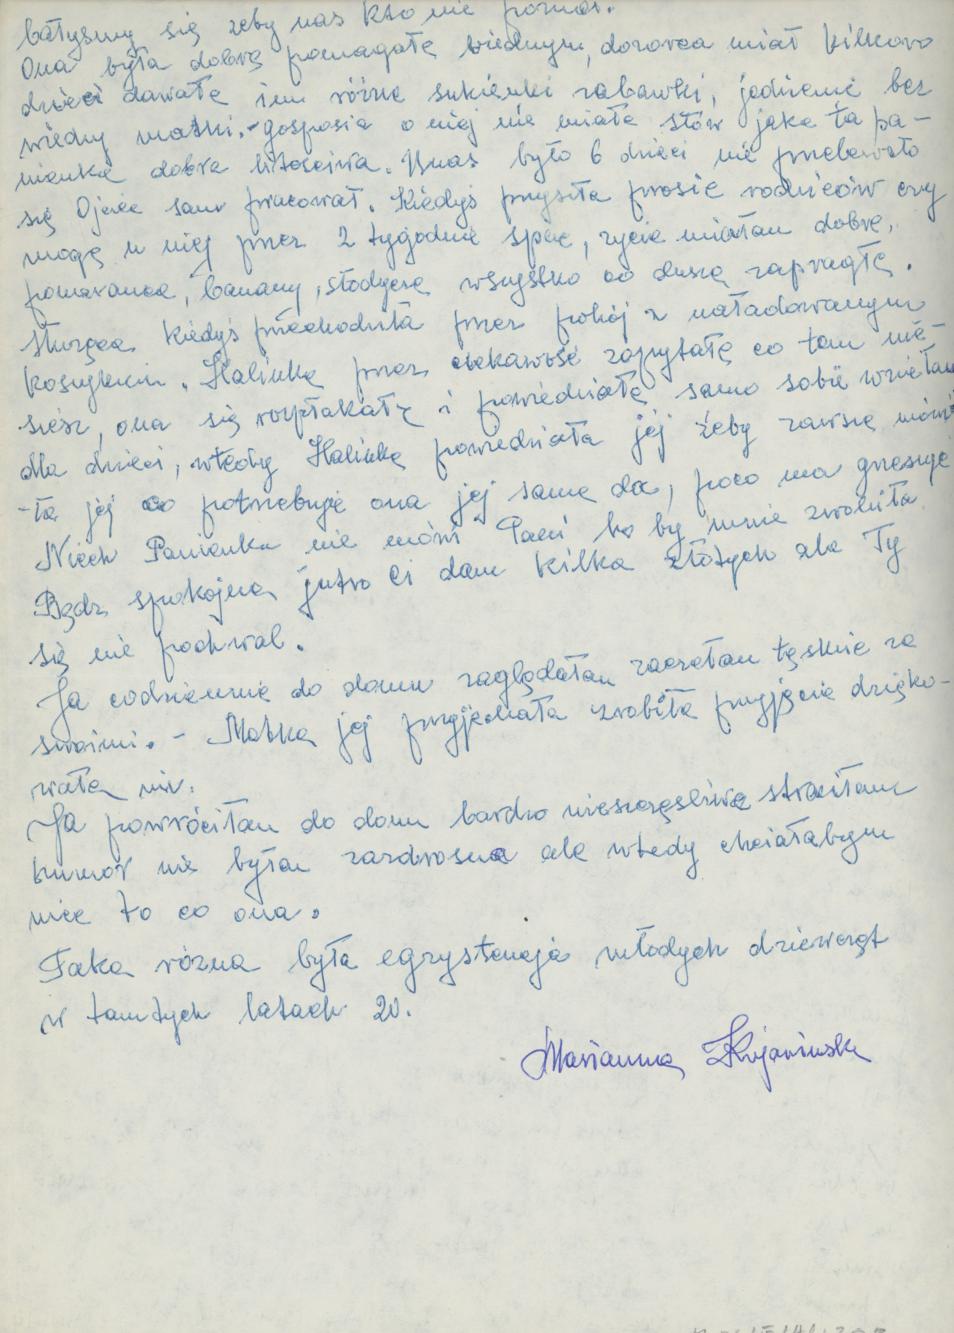 bałyśmy się żeby nas kto nie poznał.
Ona była dobrą pomagałą biednym, dozorca miał kilkoro
dzieci dawałą im różne sukienki zabawki, jedzienie bez
wiedny matki. - gosposia o niej nie miała słów jaka ta pa-
nienka dobra litościwa. U nas było 6 dzieci nie przelewało
się Ojciec sam pracował. Kiedyś przyszła prosić rodziców czy
mogę u niej przez 2 tygodnie spać, życie miałam dobre,
pomarańcze, banany, słodycze wszystko co dusza zapragłą.
Służąca kiedyś przechodziła przez pokój z naładowanym
koszykiem. Halinką przez ciekawość zapytałą co tam nie-
siesz, ona się rozpłakałą i powiedziałą samo sobie wziełam
dla dzieci, wtedy Halinką powiedziała jej żeby zawsze mówi
-ła jej co potrzebuje ona jej sama da, poco ma grzeszyć
Niech Panienka nie mówi Pani bo by mnie zwolniła
Bądz spokojną jutro Ci dam kilka złotych ale Ty
się nie pochwal.
Ja codziennie do domu zaglądałam zaczełam tęsknie za
swoimi. - Matką jej przyjechała zrobiła przyjęcie dzięko-
wałą mi.
Ja powróciłam do domu bardzo nieszczęśliwa straciłam
humor nie byłam zazdrosna ale wtedy chciałabym
mieć to co ona.
Taka rózna była egzystencja młodych dziewcząt
w tamtych latach 20.
Marianna Kujawinska